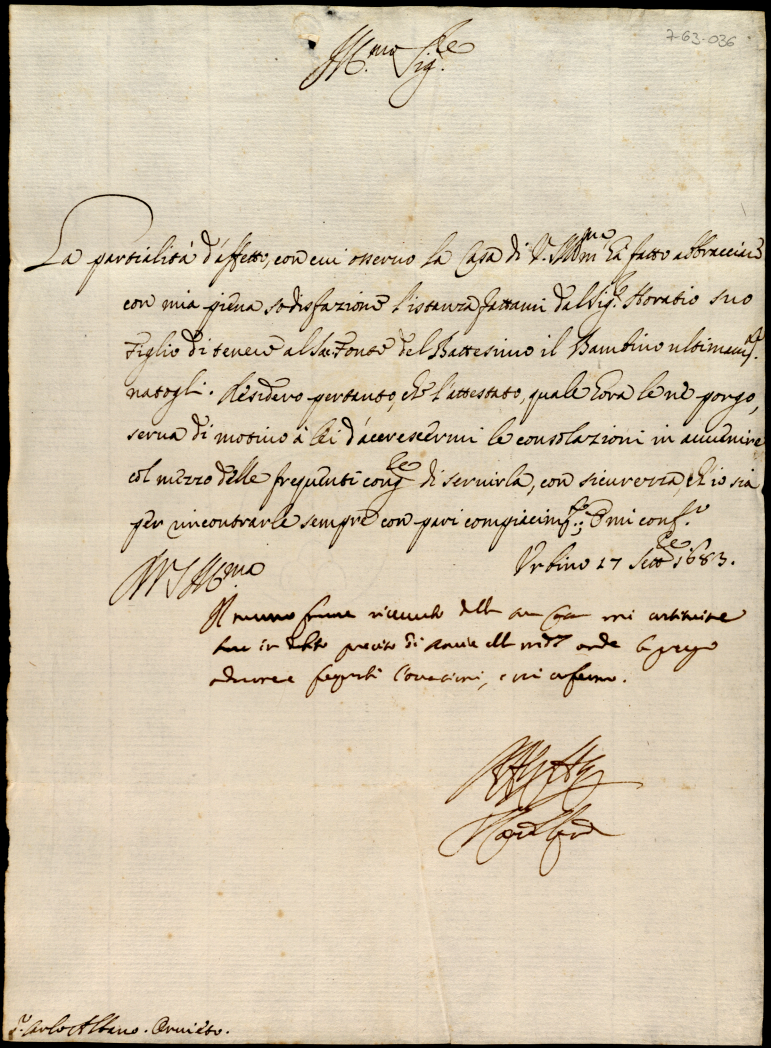 7-63-036
Ill.mo Sig.re
La partialità d'affetto, con cui osservo la Casa di V.S. Ill.ma hà fatto abbracciare
con mia piena sodisfazione l'istanza fattami dal Sig.r Horatio suo
Figlio di tenere al Sac. Fonte del Battesimo il Bambino ultimam.te
natogli. Desidero pertanto, che l'attestato, quale hora le ne porgo,
serva di motivo à lei d'accrescermi le consolazioni in avvenire
col mezzo delle frequenti cong.re di servirla, con sicurezza, ch'io sia
per incontrarle sempre con pari compiacim.to; E mi conf.o
Urbino 17 Sett.re 1683.
V.S. Ill.ma
Il nuovo ricevuto dalla sua Casa mi costituisce
in debito preciso di onde la prego
, e mi confermo.
S.r Carlo Albano. Orvieto.